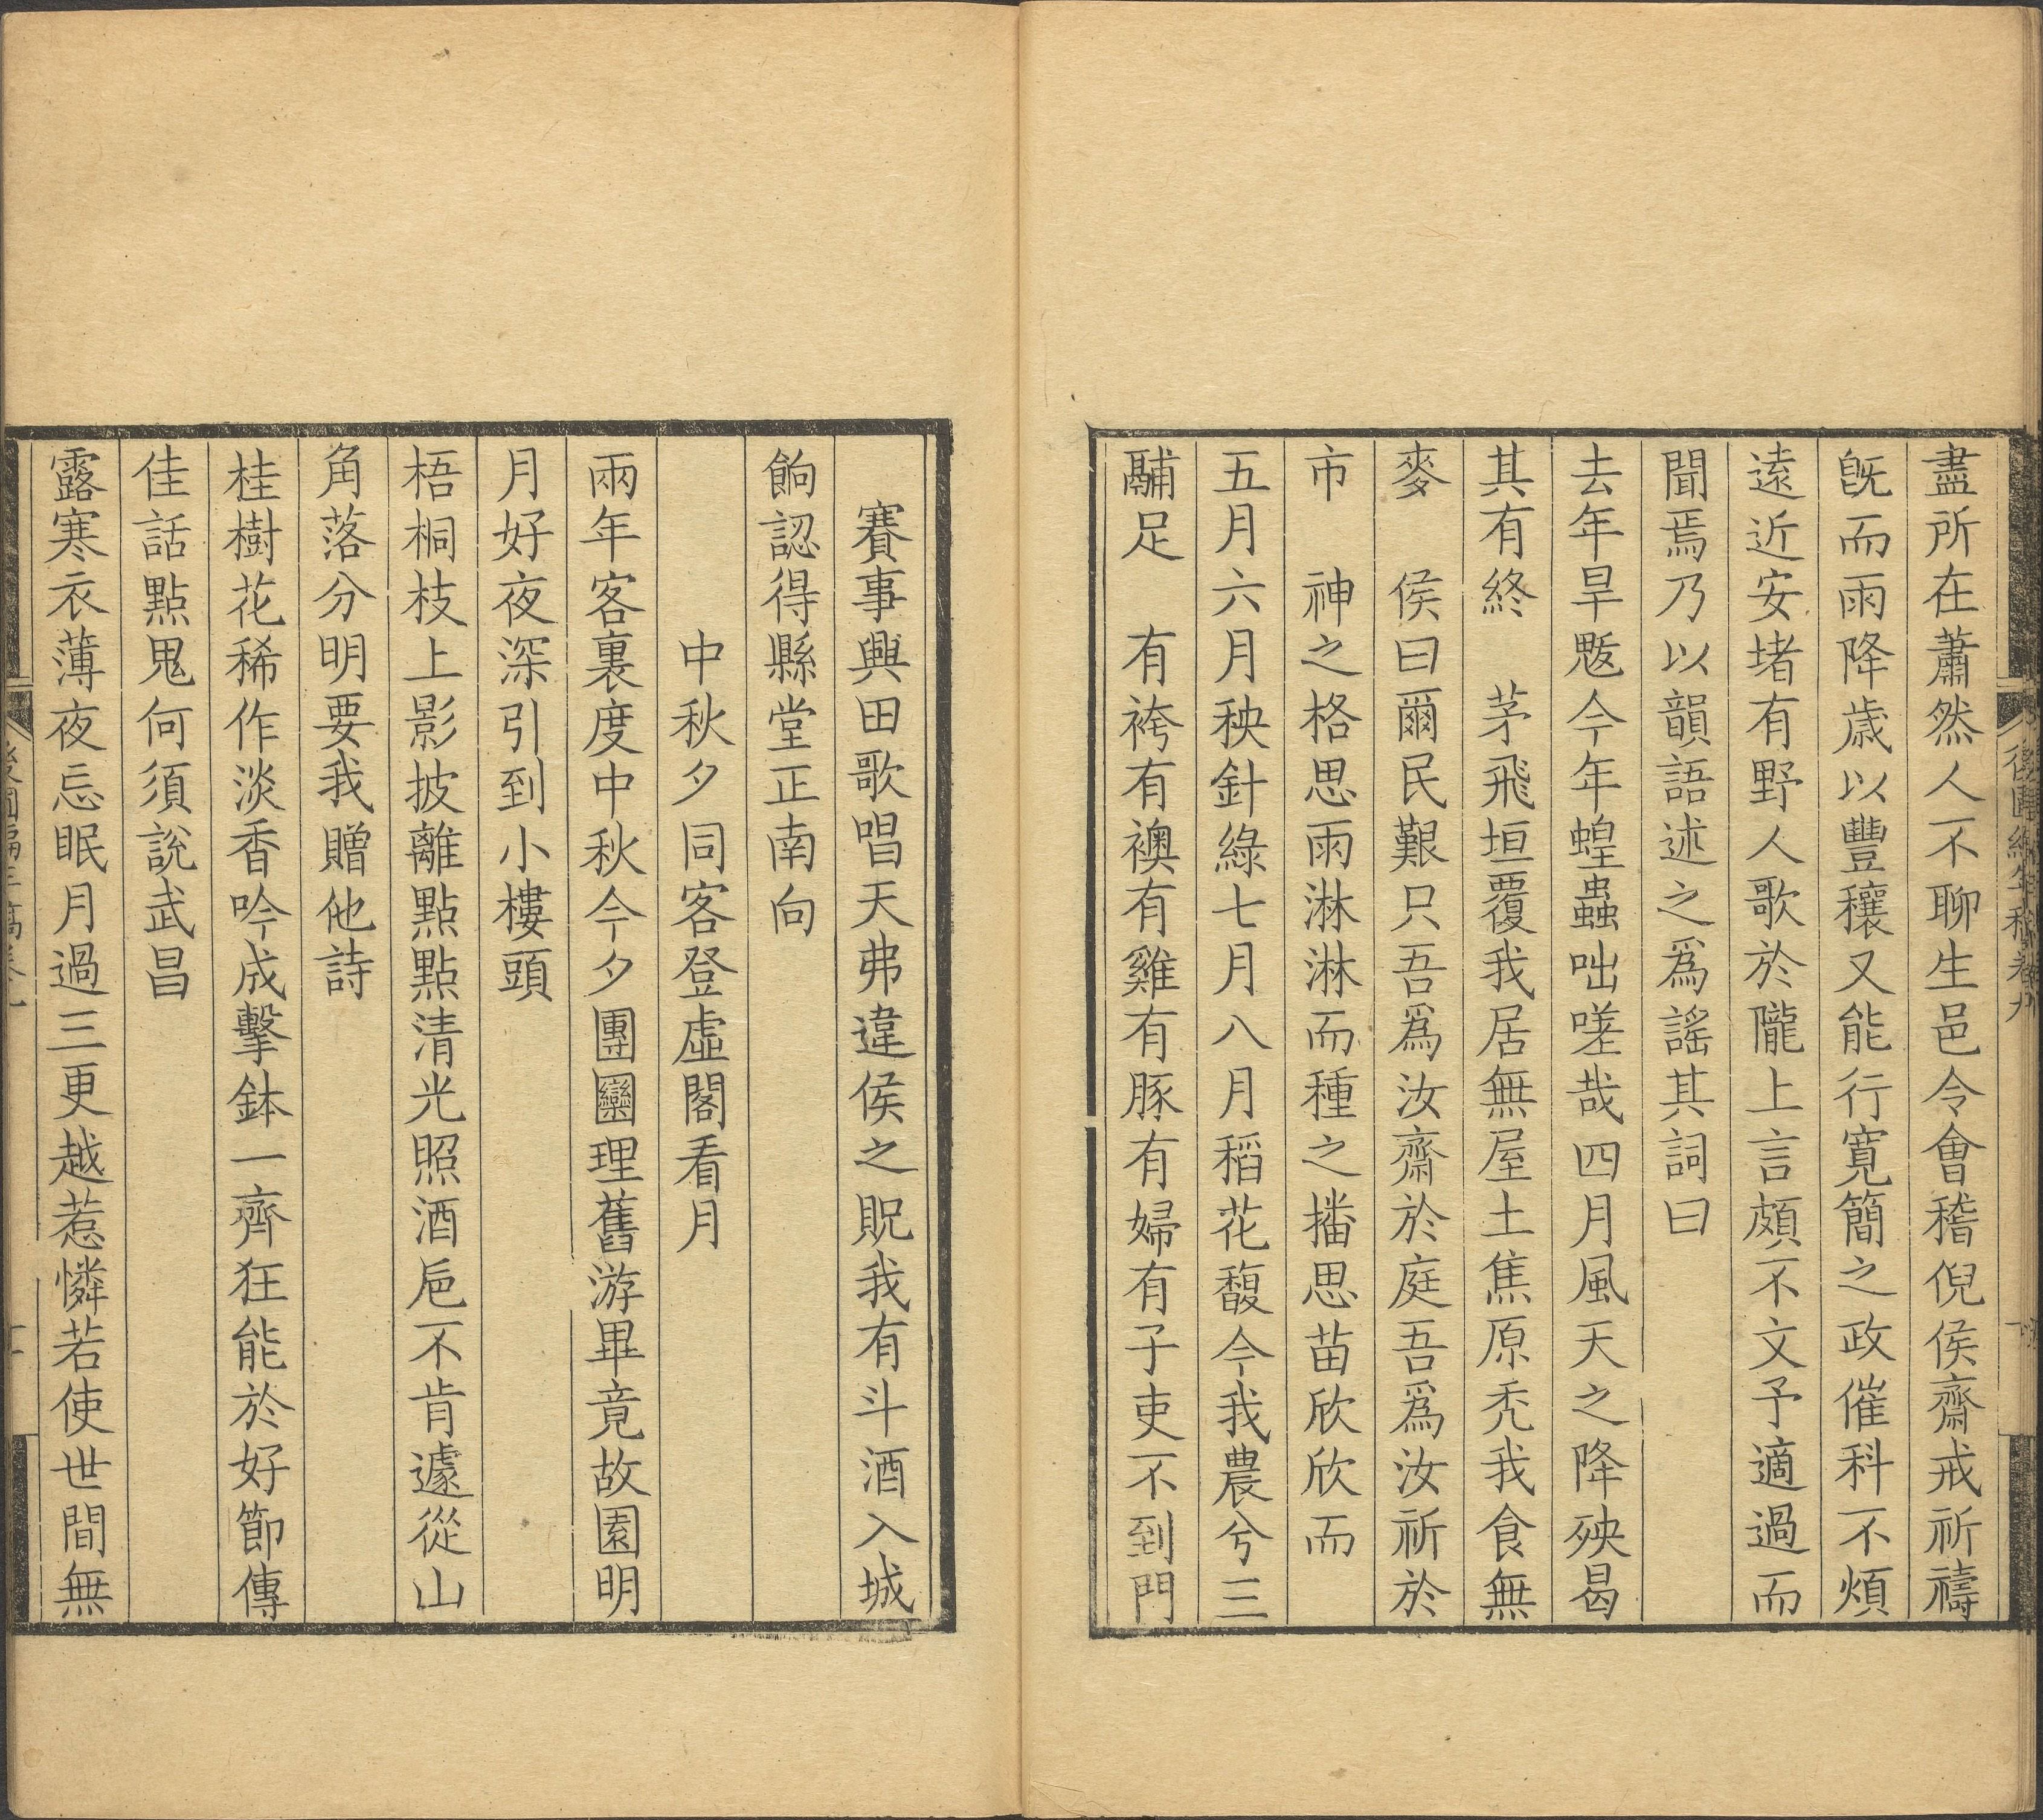 盡所在蕭然人不聊生邑令會稽倪侯齋戒祈禱
旣而雨降歲以豐穰又能行寛簡之政催科不煩
遠近安堵有野人歌於隴上言頗不文予適過而
聞焉乃以韻語述之爲謠其詞曰
去年旱魃今年蝗蟲咄嗟哉四月風天之降殃曷
其有終　茅飛垣覆我居無屋土焦原禿我食無
麥　侯曰爾民艱只吾爲汝齋於庭吾爲汝祈於
市　神之格思雨淋淋而種之播思苗欣欣而
五月六月秧針綠七月八月稻花馥今我農兮三
鬴足　有袴有襖有雞有豚有婦有子吏不到門
賽事興田歌唱天弗違侯之貺我有斗酒入城
餉認得縣堂正南向
中秋夕同客登虛閣看月
兩年客裏度中秋今夕團圞理舊游畢竟故園明
月好夜深引到小樓頭
梧桐枝上影披離點點清光照酒巵不肯遽從山
角落分明要我贈他詩
桂樹花稀作淡香吟成擊鉢一齊狂能於好節傳
佳話點鬼何須說武昌
露寒衣薄夜忘眠月過三更越惹憐若使世間無